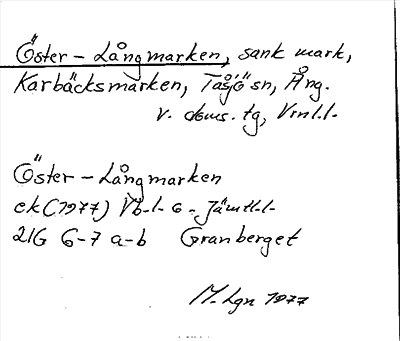 Öster-Långmarken, sank mark,
Karbäcksmarken, Tåsjö sn, Ång.
v. doms. tg, Vnl.l.
Öster-Långmarken
ek (1977) Vb-l o. Jämtl.l.
21G 6-7 a-b Granberget
M. Lgn 1977